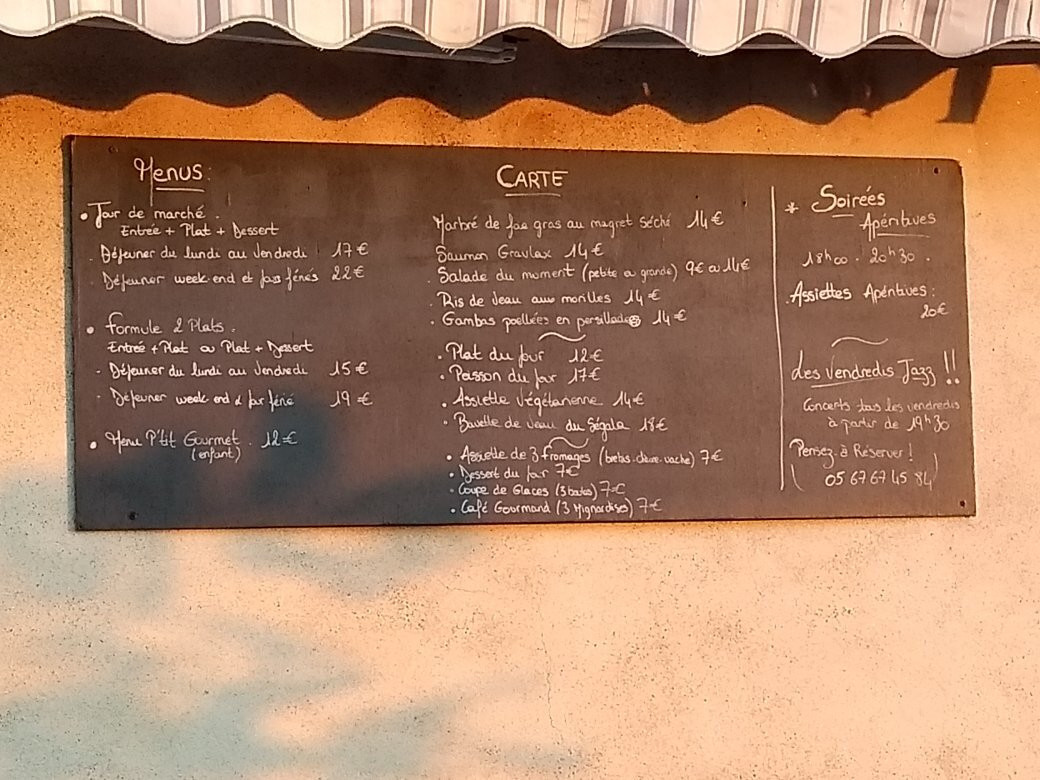 Menus:
• Tour de marché.
Entrée + Plat + Dessert
. Déjeuner du lundi au Vendredi 17€
. Déjeuner week end et jours fériés 22€
• Formule 2 Plats.
Entrée + Plat ou Plat + Dessert
- Déjeuner du lundi au Vendredi 15€
- Dejeuner week end & jour férié 19€
• Menu P'tit Gourmet. 12€
(enfant)
CARTE
Marbré de foie gras au magret séché 14€
Saumon Gravlax 14€
. Salade du moment (petite ou grande) 9€ ou 14€
. Ris de Veau aux morilles 14€
. Gambas poellées en persillade 14€
• Plat du jour 12€
• Poisson du jour 17€
. Assiette Végétarienne 14€
• Bavette de veau du Ségala 18€
• Assiette de 3 fromages (brebis-chèvre-vache) 7€
• Dessert du jour 7€
• Coupe de Glaces (3 boules) 7€
• Café Gourmand (3 Mignardises) 7€
* Soirées
Apéritives
18h00 - 20h30.
. Assiettes Apéritives:
20€
Les Vendredis Jazz!!
Concerts tous les vendredis
à partir de 19h30
Pensez à Réserver!
(05 67 67 45 84)